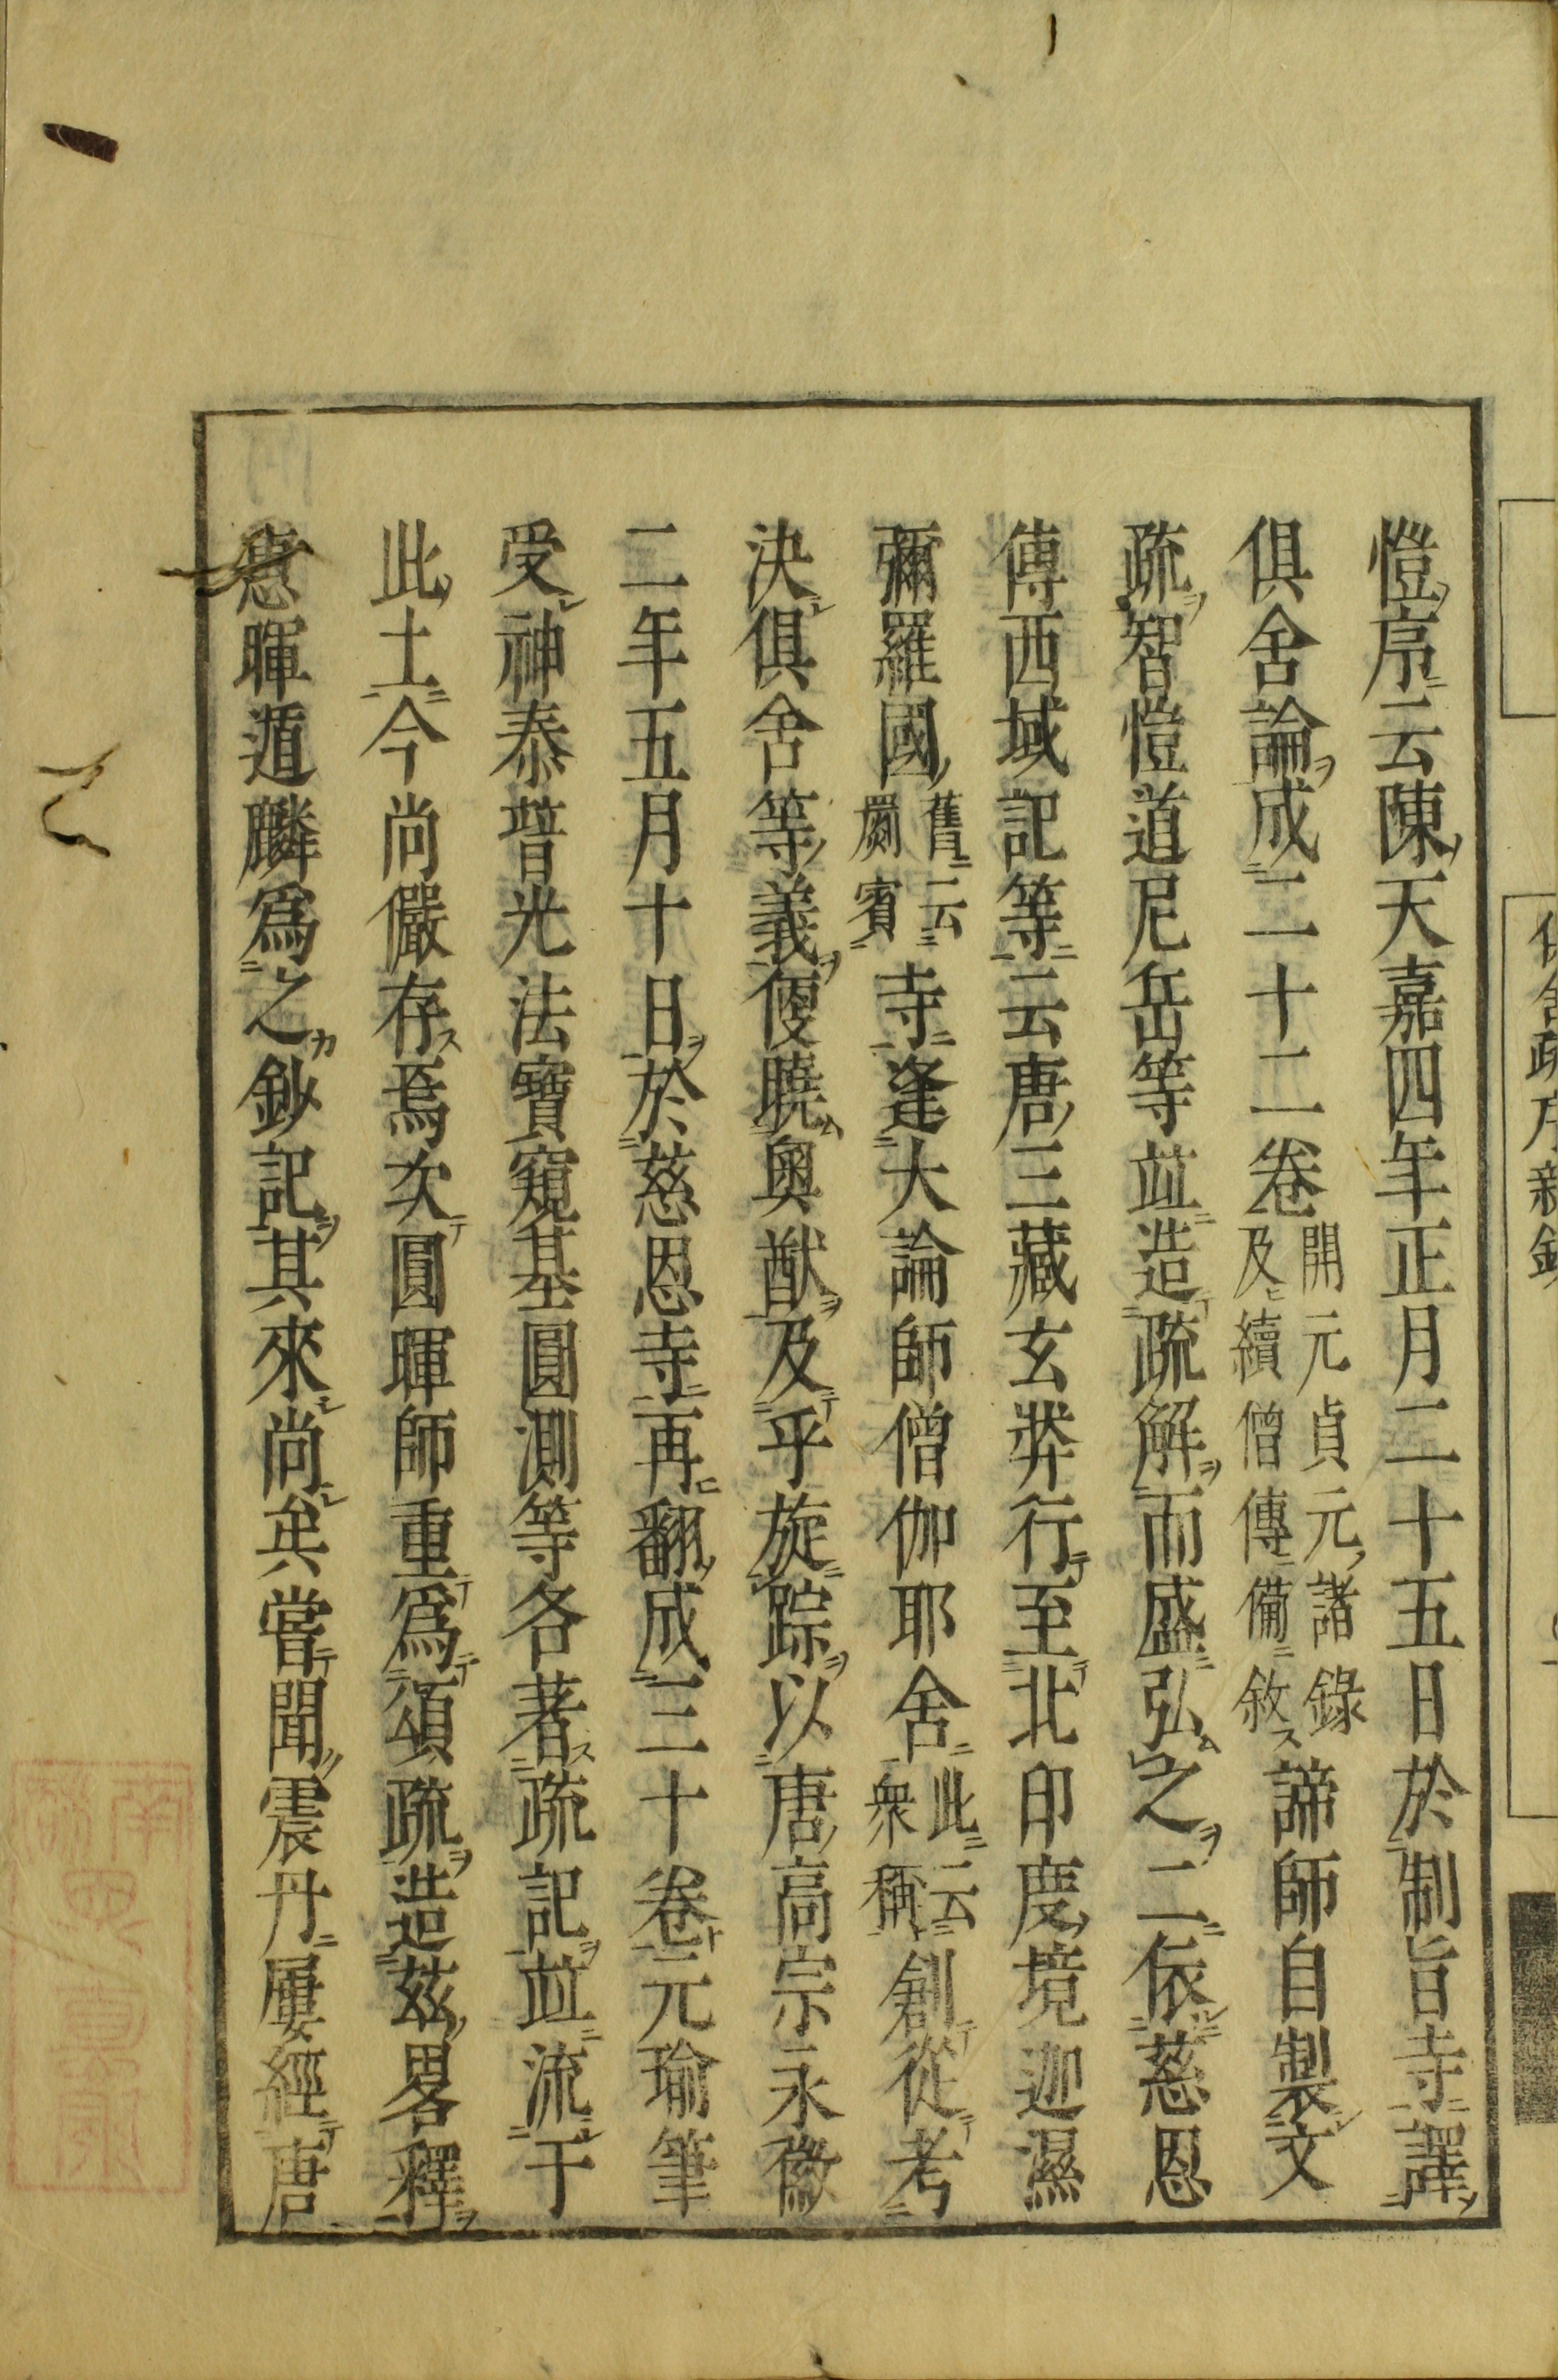 愷序云陳天嘉四年正月二十五日於制旨寺譯
俱舍論成二十二卷開元貞元諸錄及續僧傳備敘諦師自製文
疏智愷道尼岳等並造疏解而盛弘之二依慈恩
傳西域記等云唐三藏玄奘行至北印度境迦濕
彌羅國舊云罽賓寺逢大論師僧伽耶舍此云衆稱創從考
決俱舍等義便曉奧猷及乎旋踪以唐高宗永徽
二年五月十日於慈恩寺再翻成三十卷元瑜筆
受神泰普光法寶窺基圓測等各著疏記並流于
此土今尚儼存焉次圓暉師重爲頌疏造茲畧釋
惠暉遁麟爲之鈔記其來尚矣嘗聞震丹屢經唐